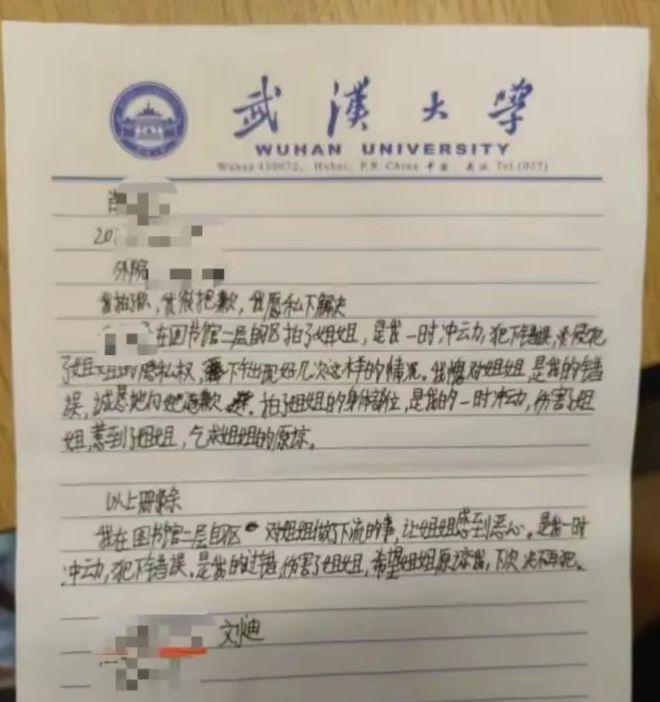 武漢大學
WUHAN UNIVERSITY
Wuhan 430072, Hubei, P.R. China 中国·武汉 Tel.(027)
肖
20
外院
我拍了你,我很抱歉,我愿私下解决
在图书馆二层自习区拍了姐姐,是我一时冲动,犯下错误,侵犯
了姐姐的隐私权,下午出现好几次这样的情况。我愧对姐姐,是我的错
误,诚恳地向她道歉。拍了姐姐的身体部位,是我的一时冲动,伤害了姐
姐,惹到了姐姐,乞求姐姐的原谅。
以上删除
我在图书馆二层自习区对姐姐做了下流的事,让姐姐感到恶心。是我一时
冲动,犯下错误。是我的过错,伤害了姐姐,希望姐姐原谅我,下次决不再犯。